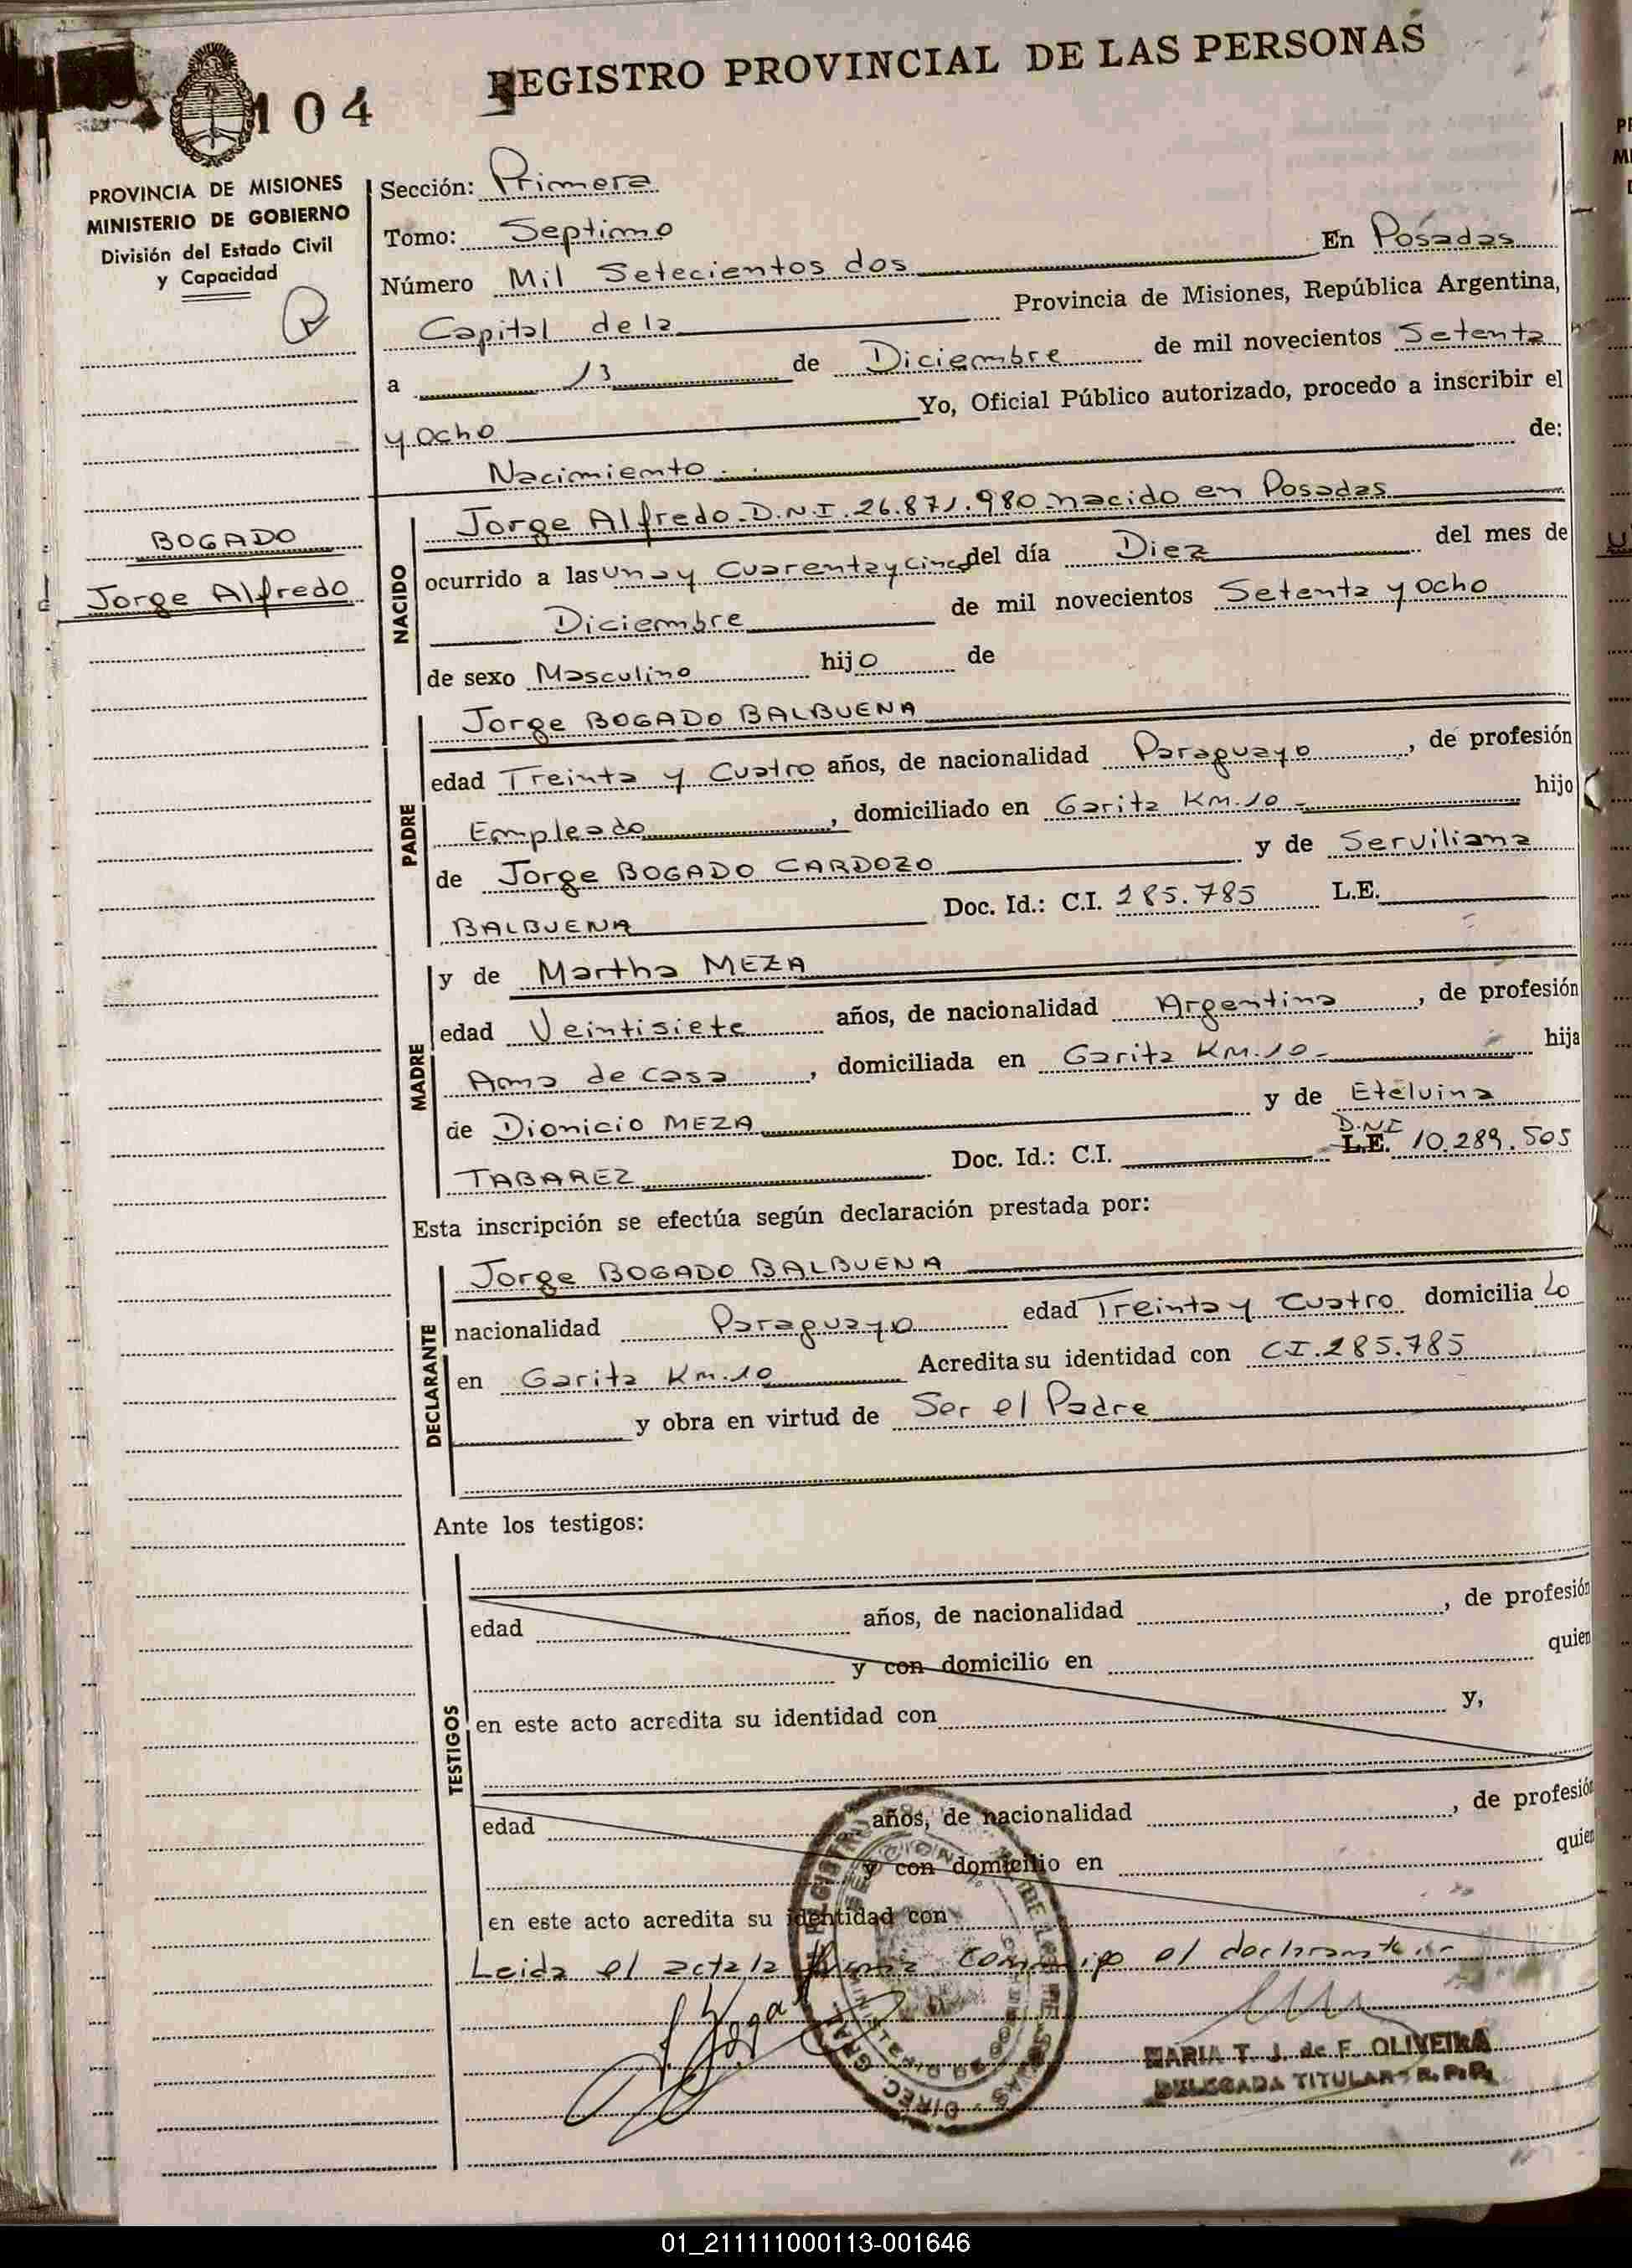 REGISTRO PROVINCIAL DE LAS PERSONAS
104
PROVINCIA DE MISIONES
MINISTERIO DE GOBIERNO
División del Estado Civil
y Capacidad
BOGADO
Jorge Alfredo
Sección: Primera
Tomo: Septimo
Número Mil Setecientos dos En Posadas
Capital de la Provincia de Misiones, República Argentina,
a 13 de Diciembre de mil novecientos Setenta
y ocho Yo, Oficial Público autorizado, procedo a inscribir el
Nacimiento de:
NACIDO
Jorge Alfredo. D.N.I. 26.871.980 nacido en Posadas
ocurrido a las una y Cuarenta y cinco del día Diez del mes de
Diciembre de mil novecientos Setenta y ocho
de sexo Masculino hijo de
PADRE
Jorge BOGADO BALBUENA
edad Treinta y Cuatro años, de nacionalidad Paraguayo, de profesión
Empleado, domiciliado en Garita KM.10- hijo
de Jorge BOGADO CARDOZO y de Serviliana
BALBUENA Doc. Id.: C.I. 285.785 L.E.
MADRE
y de Martha MEZA
edad Veintisiete años, de nacionalidad Argentina, de profesión
Ama de casa, domiciliada en Garita KM.10- hija
de Dionicio MEZA y de Etelvina
TABAREZ Doc. Id.: C.I. L.E. D.N.I 10.289.505
Esta inscripción se efectúa según declaración prestada por:
DECLARANTE
Jorge BOGADO BALBUENA
nacionalidad Paraguayo edad Treinta y Cuatro domiciliado
en Garita Km.10 Acredita su identidad con C.I.285.785
y obra en virtud de Ser el Padre
Ante los testigos:
TESTIGOS
edad años, de nacionalidad , de profesión
y con domicilio en quien
en este acto acredita su identidad con y,
edad años, de nacionalidad , de profesión
y con domicilio en quien
en este acto acredita su identidad con
Leida el acta la firma conmigo el declarante
MARIA T. J. de F. OLIVEIRA
DELEGADA TITULAR - R.P.P.
01_211111000113-001646